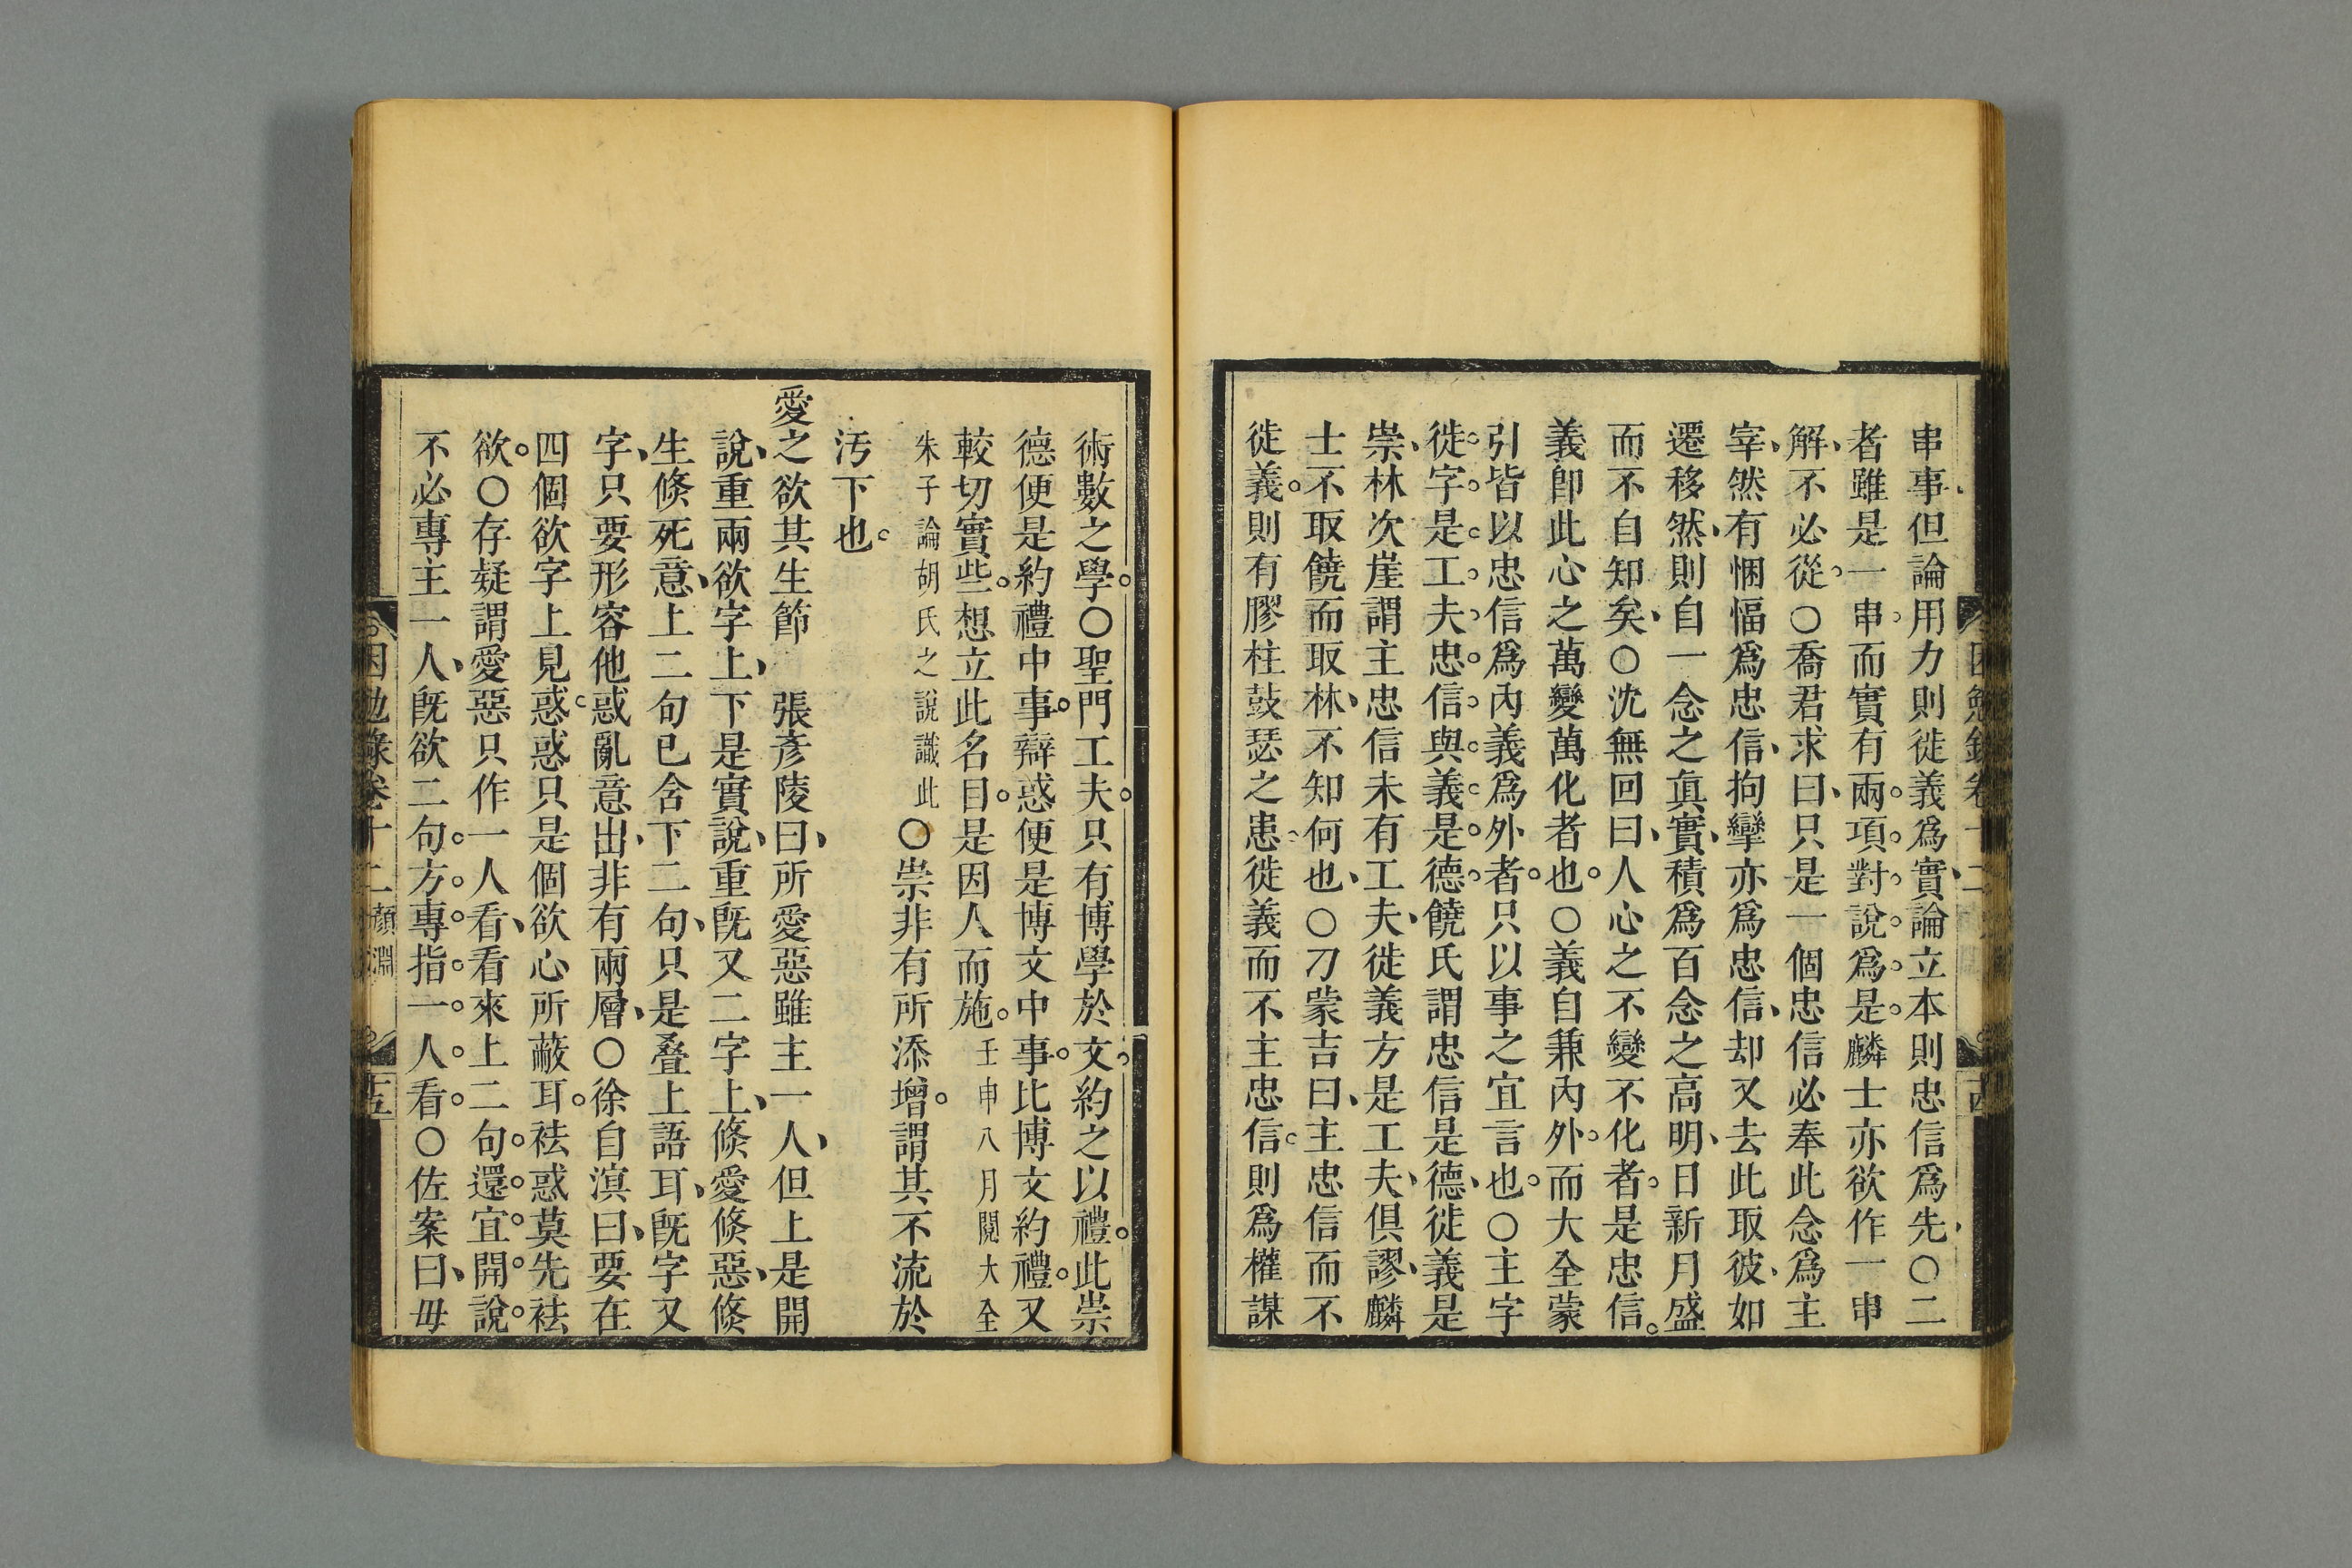 串事但論用力則徙義爲實論立本則忠信爲先〇二
者雖是一串而實有兩項對說爲是麟士亦欲作一串
解不必從〇喬君求曰只是一個忠信必奉此念爲主
宰然有悃愊爲忠信拘攣亦爲忠信却又去此取彼如
遷移然則自一念之眞實積爲百念之高明日新月盛
而不自知矣〇沈無回曰人心之不變不化者是忠信
義卽此心之萬變萬化者也〇義自兼內外而大全蒙
引皆以忠信爲內義爲外者只以事之宜言也〇主字
徙字是工夫忠信與義是德饒氏謂忠信是德徙義是
崇林次崖謂主忠信未有工夫徙義方是工夫俱謬麟
士不取饒而取林不知何也〇刁蒙吉曰主忠信而不
徙義則有膠柱鼓瑟之患徙義而不主忠信則爲權謀
術數之學〇聖門工夫只有博學於文約之以禮此崇
德便是約禮中事辯惑便是博文中事比博文約禮又
較切實些想立此名目是因人而施壬申八月閱大全
朱子論胡氏之說識此〇崇非有所添增謂其不流於
汚下也
愛之欲其生節 張彥陵曰所愛惡雖主一人但上是開
說重兩欲字上下是實說重旣又二字上倏愛倏惡倏
生倏死意上二句已含下二句只是叠上語耳旣字又
字只要形容他惑亂意出非有兩層〇徐自溟曰要在
四個欲字上見惑惑只是個欲心所蔽耳袪惑莫先袪
欲〇存疑謂愛惡只作一人看看來上二句還宜開說
不必專主一人旣欲二句方專指一人看〇佐案曰毋
困勉錄卷十二 顏淵 十五